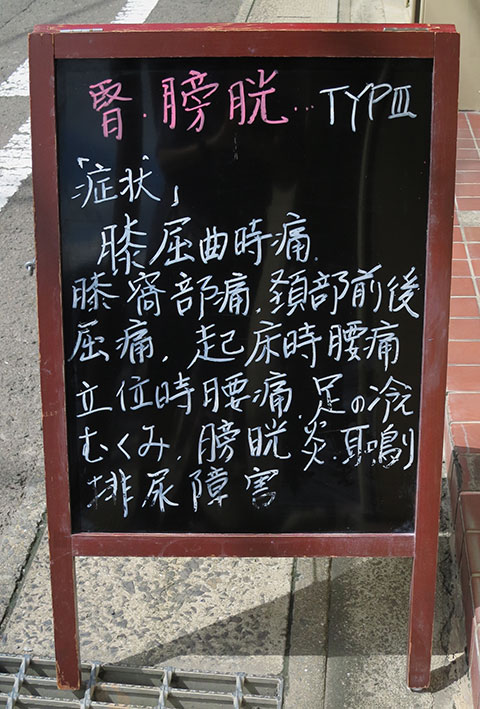 腎・膀胱… TYPⅢ
「症状」
膝屈曲時痛.
膝窩部痛.頚部前後
屈痛.起床時腰痛
立位時腰痛.足の冷え
むくみ.膀胱炎.耳鳴り
排尿障害